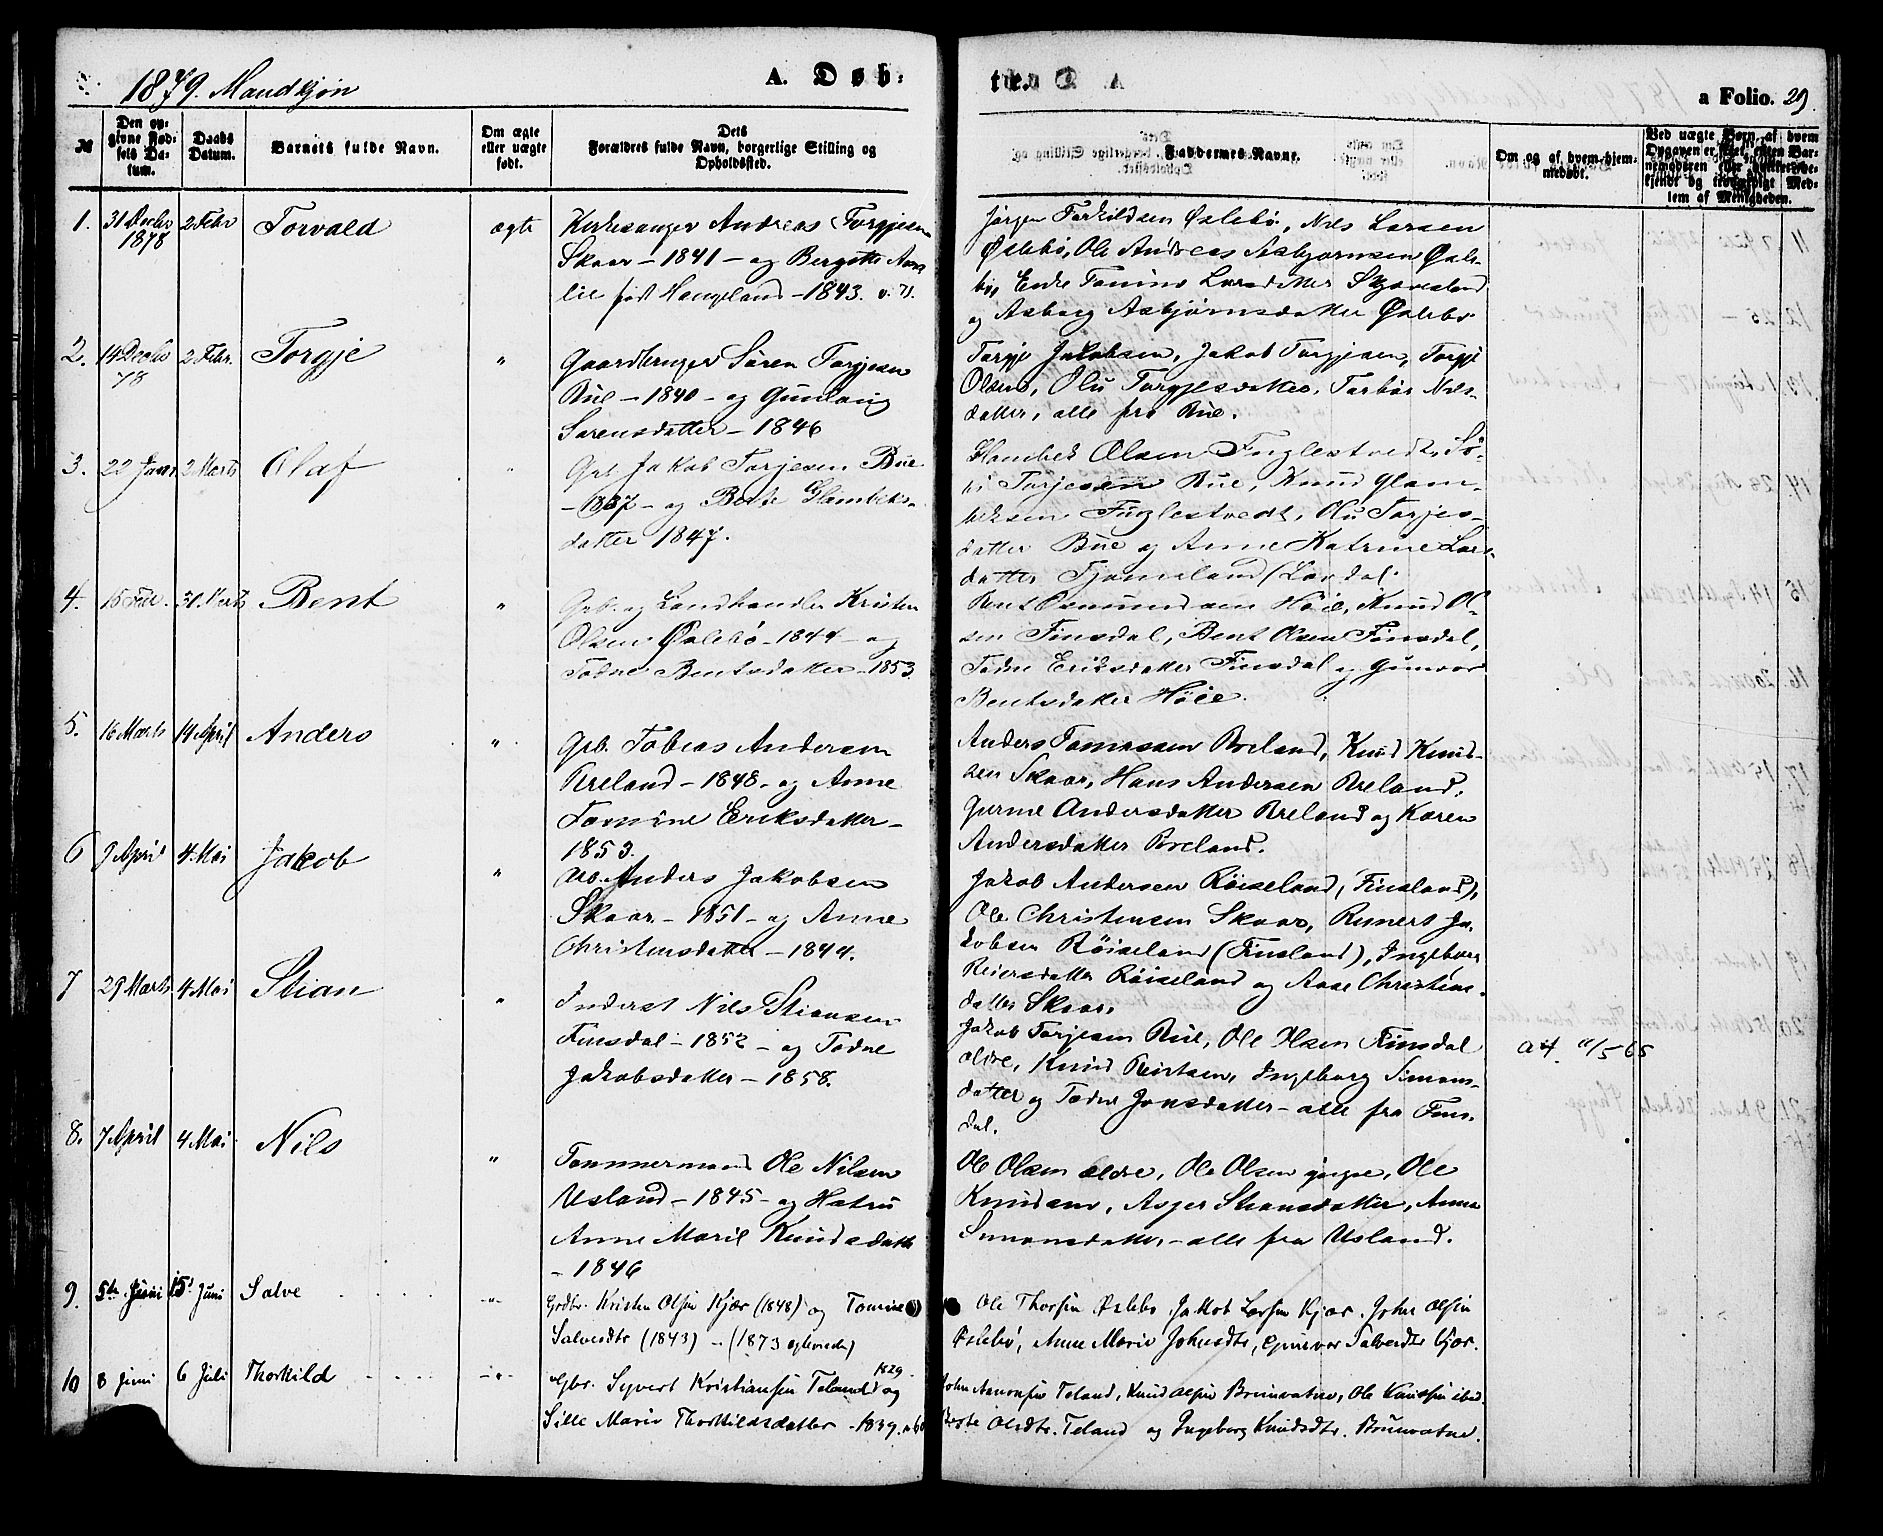 1879. Mandkjøn
A. Døb-
te.
a Folio. 29.
№
Den op-
givne Fød-
sels Da-
tum.
Daabs
Datum.
Barnets fulde Navn.
Om ægte
eller uægte
født.
Dets
Forældres fulde Navn, borgerlige Stilling og
Opholdssted.
Faddernes Navne.
Om og af hvem hjem-
medøbt.
Ved uægte Børn, af hvem
Opgaven er
nemoderen
kjendt og
lem af Menigheden.
1. 31 Decbr 2 Febr Torvald ægte Kirkesanger Andreas Torgjesen
1878
Skaar - 1841 - og Bergitte Ama-
lie født Haugeland - 1843.
Jørgen Torkildsen Øslebø, Nils Larsen
Øslebø, Ole Andreas Asbjørnsen Øsle-
bø,
og Asborg Asbjørnsdatter Øslebø
2. 14 Decbr 2 Febr. Torgje " Gaardbruger Søren Torgjesen
78
Bue - 1840 - og Gunlaug
Sørensdatter - 1846
Torgje Jakobsen, Jakob Torgjesen, Torgje
Olsen, Olu Torgjesdatter, Torbør Nils-
datter, alle fra Bue.
3. 22 Janr 2 Marts Olaf " Grb. Jakob Torjesen Bue
- 1837 - og Berte Glambeks-
datter 1847.
Glambek Olsen Fuglestvedt, Sø-
Torjesen Bue, Knud Glam-
beksen Fuglestvedt, Olu Torjes-
datter Bue og Anne Katrine Lars-
datter Tjomeland (Løvdal.
4. 15 Febr. 31. Marts Bent " Grb. og Landhandler Kristen
Olsen Øslebø - 1844 - og
Todne Bentsdatter - 1853.
Bent Osmundsen Høie, Knud Ol-
sen Finsdal, Bent Olsen Finsdal,
Todne Eriksdatter Finsdal og Gunvor
Bentsdatter Høie.
5. 16 Marts 14 April Anders " Grb. Tobias Andersen
Breland - 1848 - og Anne
Tomine Eriksdatter -
1853.
Anders Tomassen Breland, Knud Knud-
sen Skaar, Hans Andersen Breland,
Gurine Andersdatter Breland og Karen
Andersdatter Breland.
6 9 April 4. Mai Jakob " Arb. Anders Jakobsen
Skaar - 1851 - og Anne
Christensdatter - 1844.
Jakob Andersen Røiseland, (Finsland),
Ole Christensen Skaar, Reinert Ja-
kobsen Røiseland (Finsland), Ingeborg
Reiersdatter Røiseland og Aase Christens-
datter Skaar.
7 29 Marts 4 Mai Stian " Inderst Nils Stiansen
Finsdal - 1852 - og Todne
Jakobsdatter - 1858.
Jakob Torjesen Bue, Ole Olsen Finsdal
ældre, Knud Reiersen, Ingeborg Simons-
datter og Todne Jonsdatter - alle fra Fins-
dal.
8. 7 April 4 Mai Nils " Tømmermand Ole Nilsen
Usland - 1845 - og
Anne Maril Knudsdatter
- 1846
Ole Olsen ældre, Ole Olsen yngre, Ole
Knudsen, Asger Stiansdatter, Anna
Simonsdatter, - alle fra Usland.
9. 5te Juni 15 Juni Salve -"- Grdbr. Kristen Olsen Kjær (1848) og Tomine
Salvesdtr (1843) - (1873
Ole Thorsen Øslebø Jakob Larsen Kjær. John Olsen
Øslebø, Anne Marie Johnsdtr, Gunvor Salvesdtr Kjær.
10 8 Juni 6 Juli Thorkild -"- Gbr. Syvert Kristiansen Teland 1829. og
Sille Marie Thorkildsdatter - 1839.
John Aanonsen Teland, Knud Olsen Brunvatne, Ole Knudsen ibid.
Berte Olsdtr. Teland og Ingeborg Knudsdtr. Brunvatne.